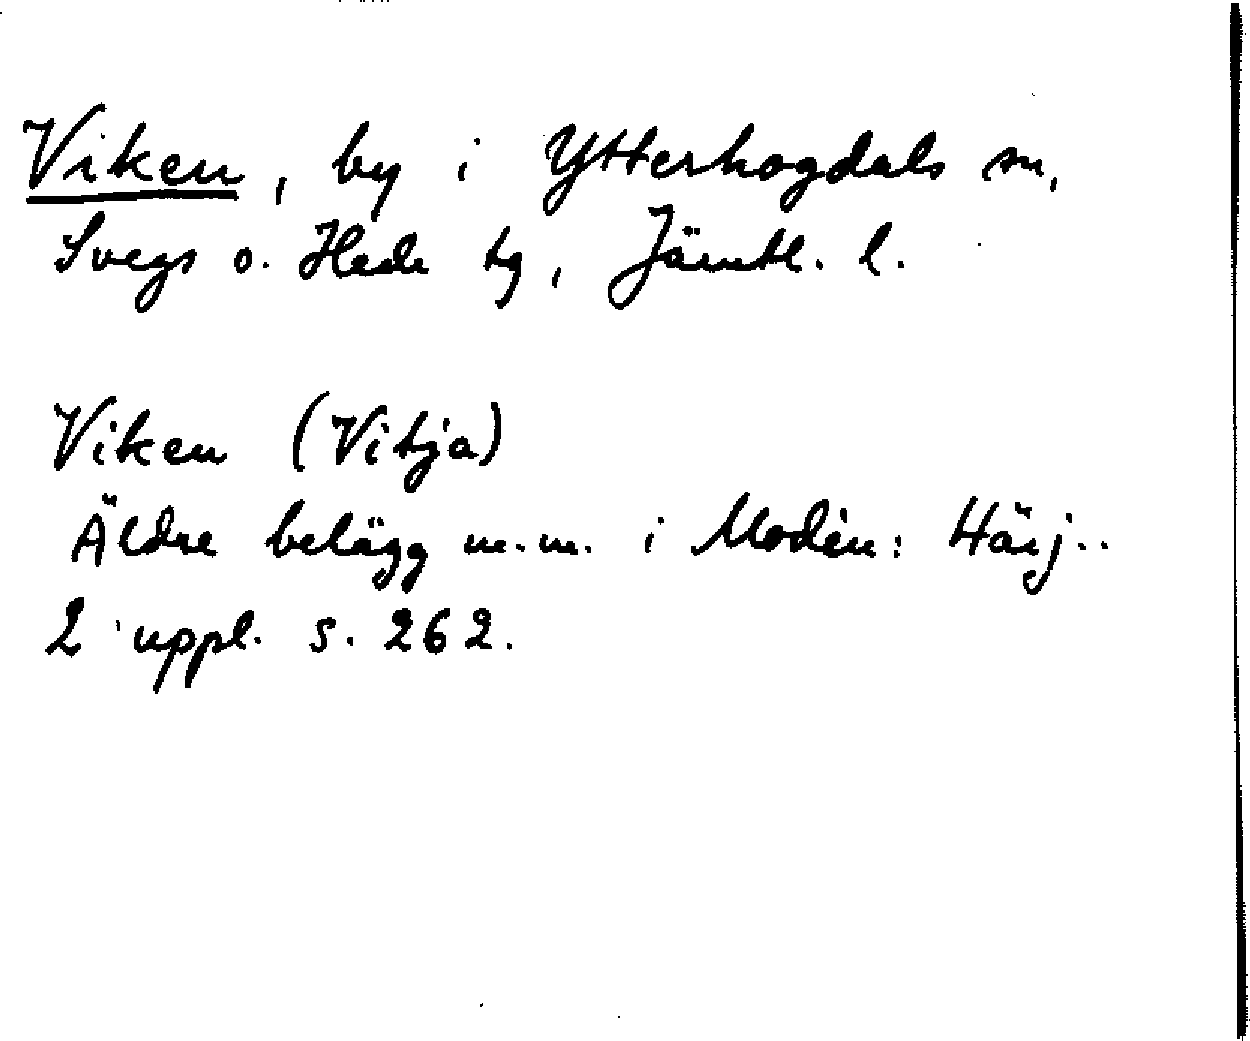 Viken, by i Ytterhogdals sn,
Svegs o. Hede tg, Jämtl. l.
Viken (Vitja)
Äldre belägg m.m. i Modin: Härj..
2 uppl. s. 262.